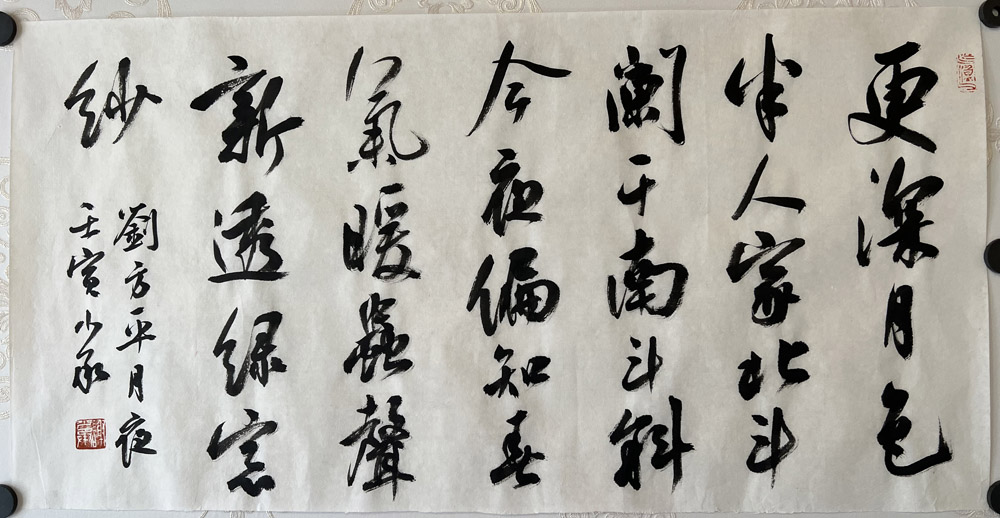 更深月色
半人家北斗
闌干南斗斜
今夜偏知春
氣暖蟲聲
新透綠窓
紗
劉方平月夜
壬寅少承